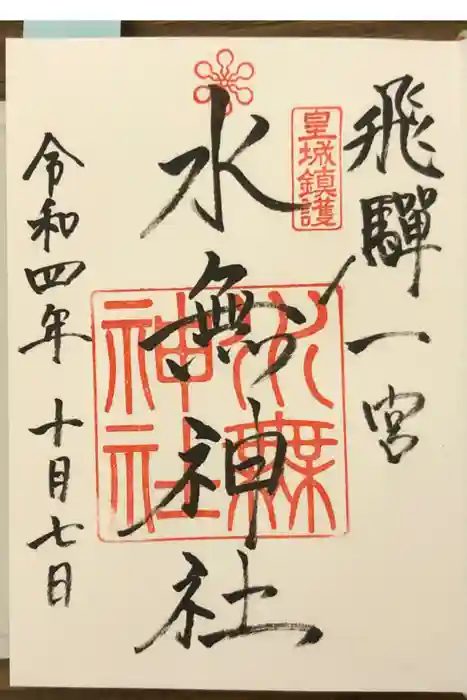 飛驒一宮
皇城鎮護
水無神社
水無神社
令和四年十月七日